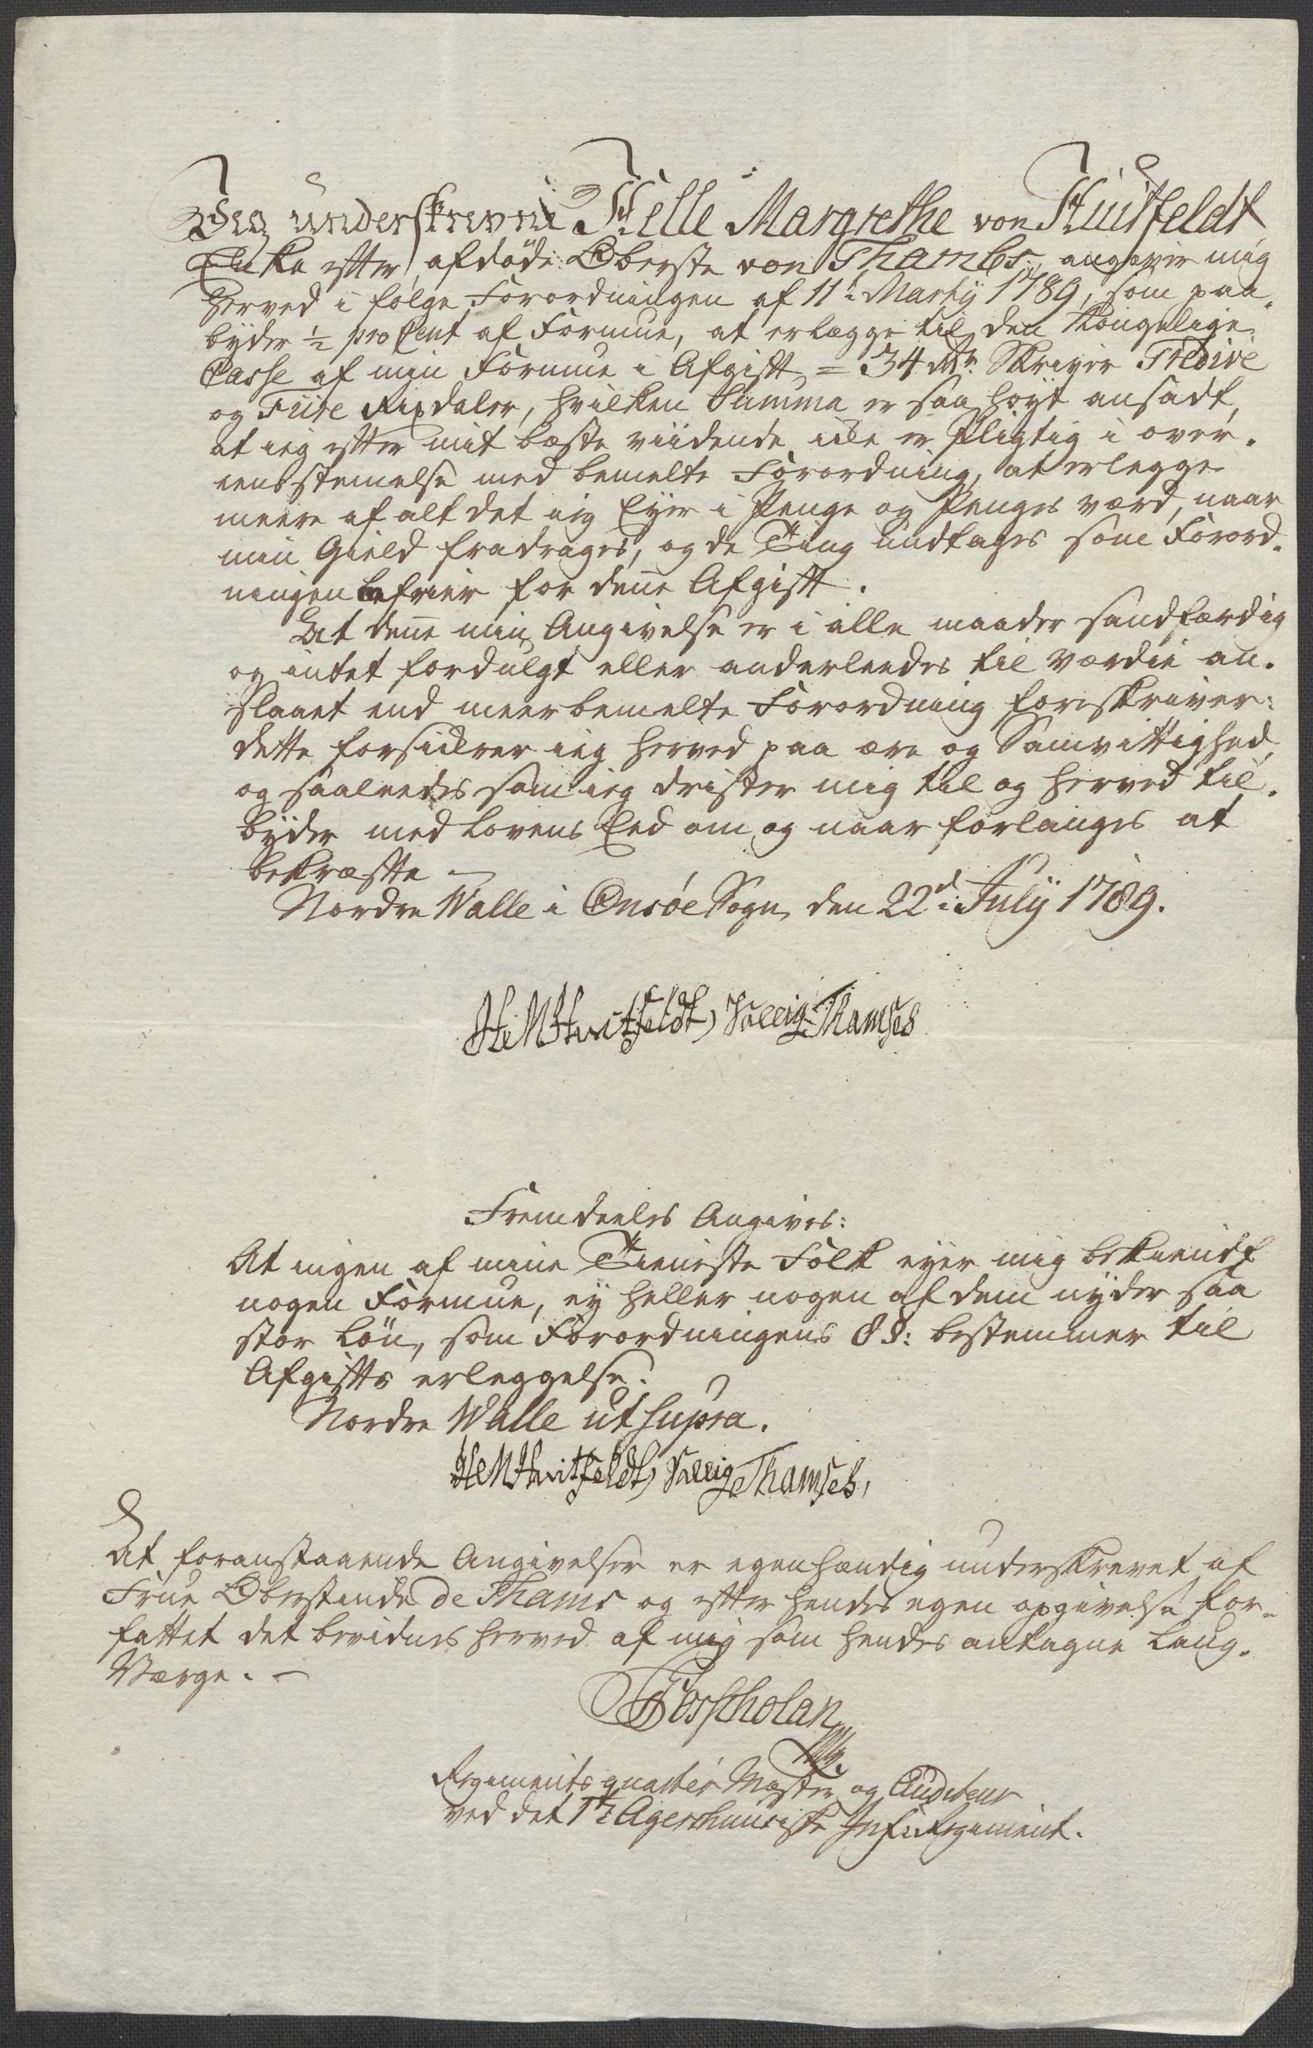 Jeg underskrevne Helle Margrethe von Huitfeldt
Enke efter afdøde Oberste von Thambs, angiver mig
herved i følge Forordningen af 11te Marty 1789, som paa-
byder ½ pro Cent af Formue, at erlægge til den Kongelige
Casse af min Formue i Afgift = 34 Rdr. Skriver Tredive
og Fiire Rixdaler, hvilken Summa er saa høyt ansadt,
at ieg efter mit beste viidende icke er pligtig i over-
eensstemelse med bemelte Forordning, at erlegge
meere af alt det ieg Eyer i Penge og Penges værd, naar
min Gield fradrages, og de Ting undtages som Forord-
ningen befrier for denne Afgift.
At denne min Angivelse er i alle maader sandfærdig
og intet fordulgt eller anderleedes til værdie an-
slaaet end meerbemelte Forordning foreskriver:
dette forsikrer ieg herved paa ære og Samvittighed,
og saaleedes som ieg drister mig til og herved til-
byder med Lovens Eed om og naar forlanges at
bekræfte —
Nordre Walle i Onsøe Sogn, den 22d July 1789.
HeMHvitfeldt, Sallig Thamses
Fremdeeles Angives:
At ingen af mine Tieneste Folk eyer mig bekiendt
nogen Formue, ey heller nogen af dem nyder saa
stor Løn, som Forordningens 8 §: bestemmer til
Afgifts erleggelse.
Nordre Walle ut supra.
HeMHvitfeldt, Sallig Thamses,
At foranstaaende Angivelser er egenhændig underskrevet af
Frue Oberstinde de Thams og efter hendes egen opgivelse for-
fattet det bevidnes herved af mig som hendes antagne Laug-
Værge. —
Forscholan
Regimentsquarteer Mæster og Auditeur
ved det 1te Agershuusiske Inf: Regiment.